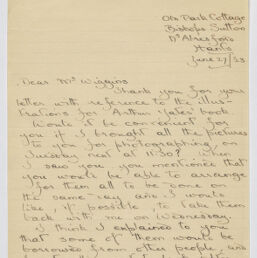 Old Park Cottage
Bishops Sutton
Nr Alresford
Hants
June 27/23
Dear Mr Wiggins
Thank you for your
letter with reference to the illus-
trations for Arthur Yates' book.
Would it be convenient for
you if I brought all the pictures
to you for photographing, on
Tuesday next at 11.30? When
I saw you you mentioned that
you would be able to arrange
for them all to be done on
the same day and I would
like, if possible, to take them
back with me on Wednesday.
I think I explained to you
that some of them would be
borrowed from other people, and